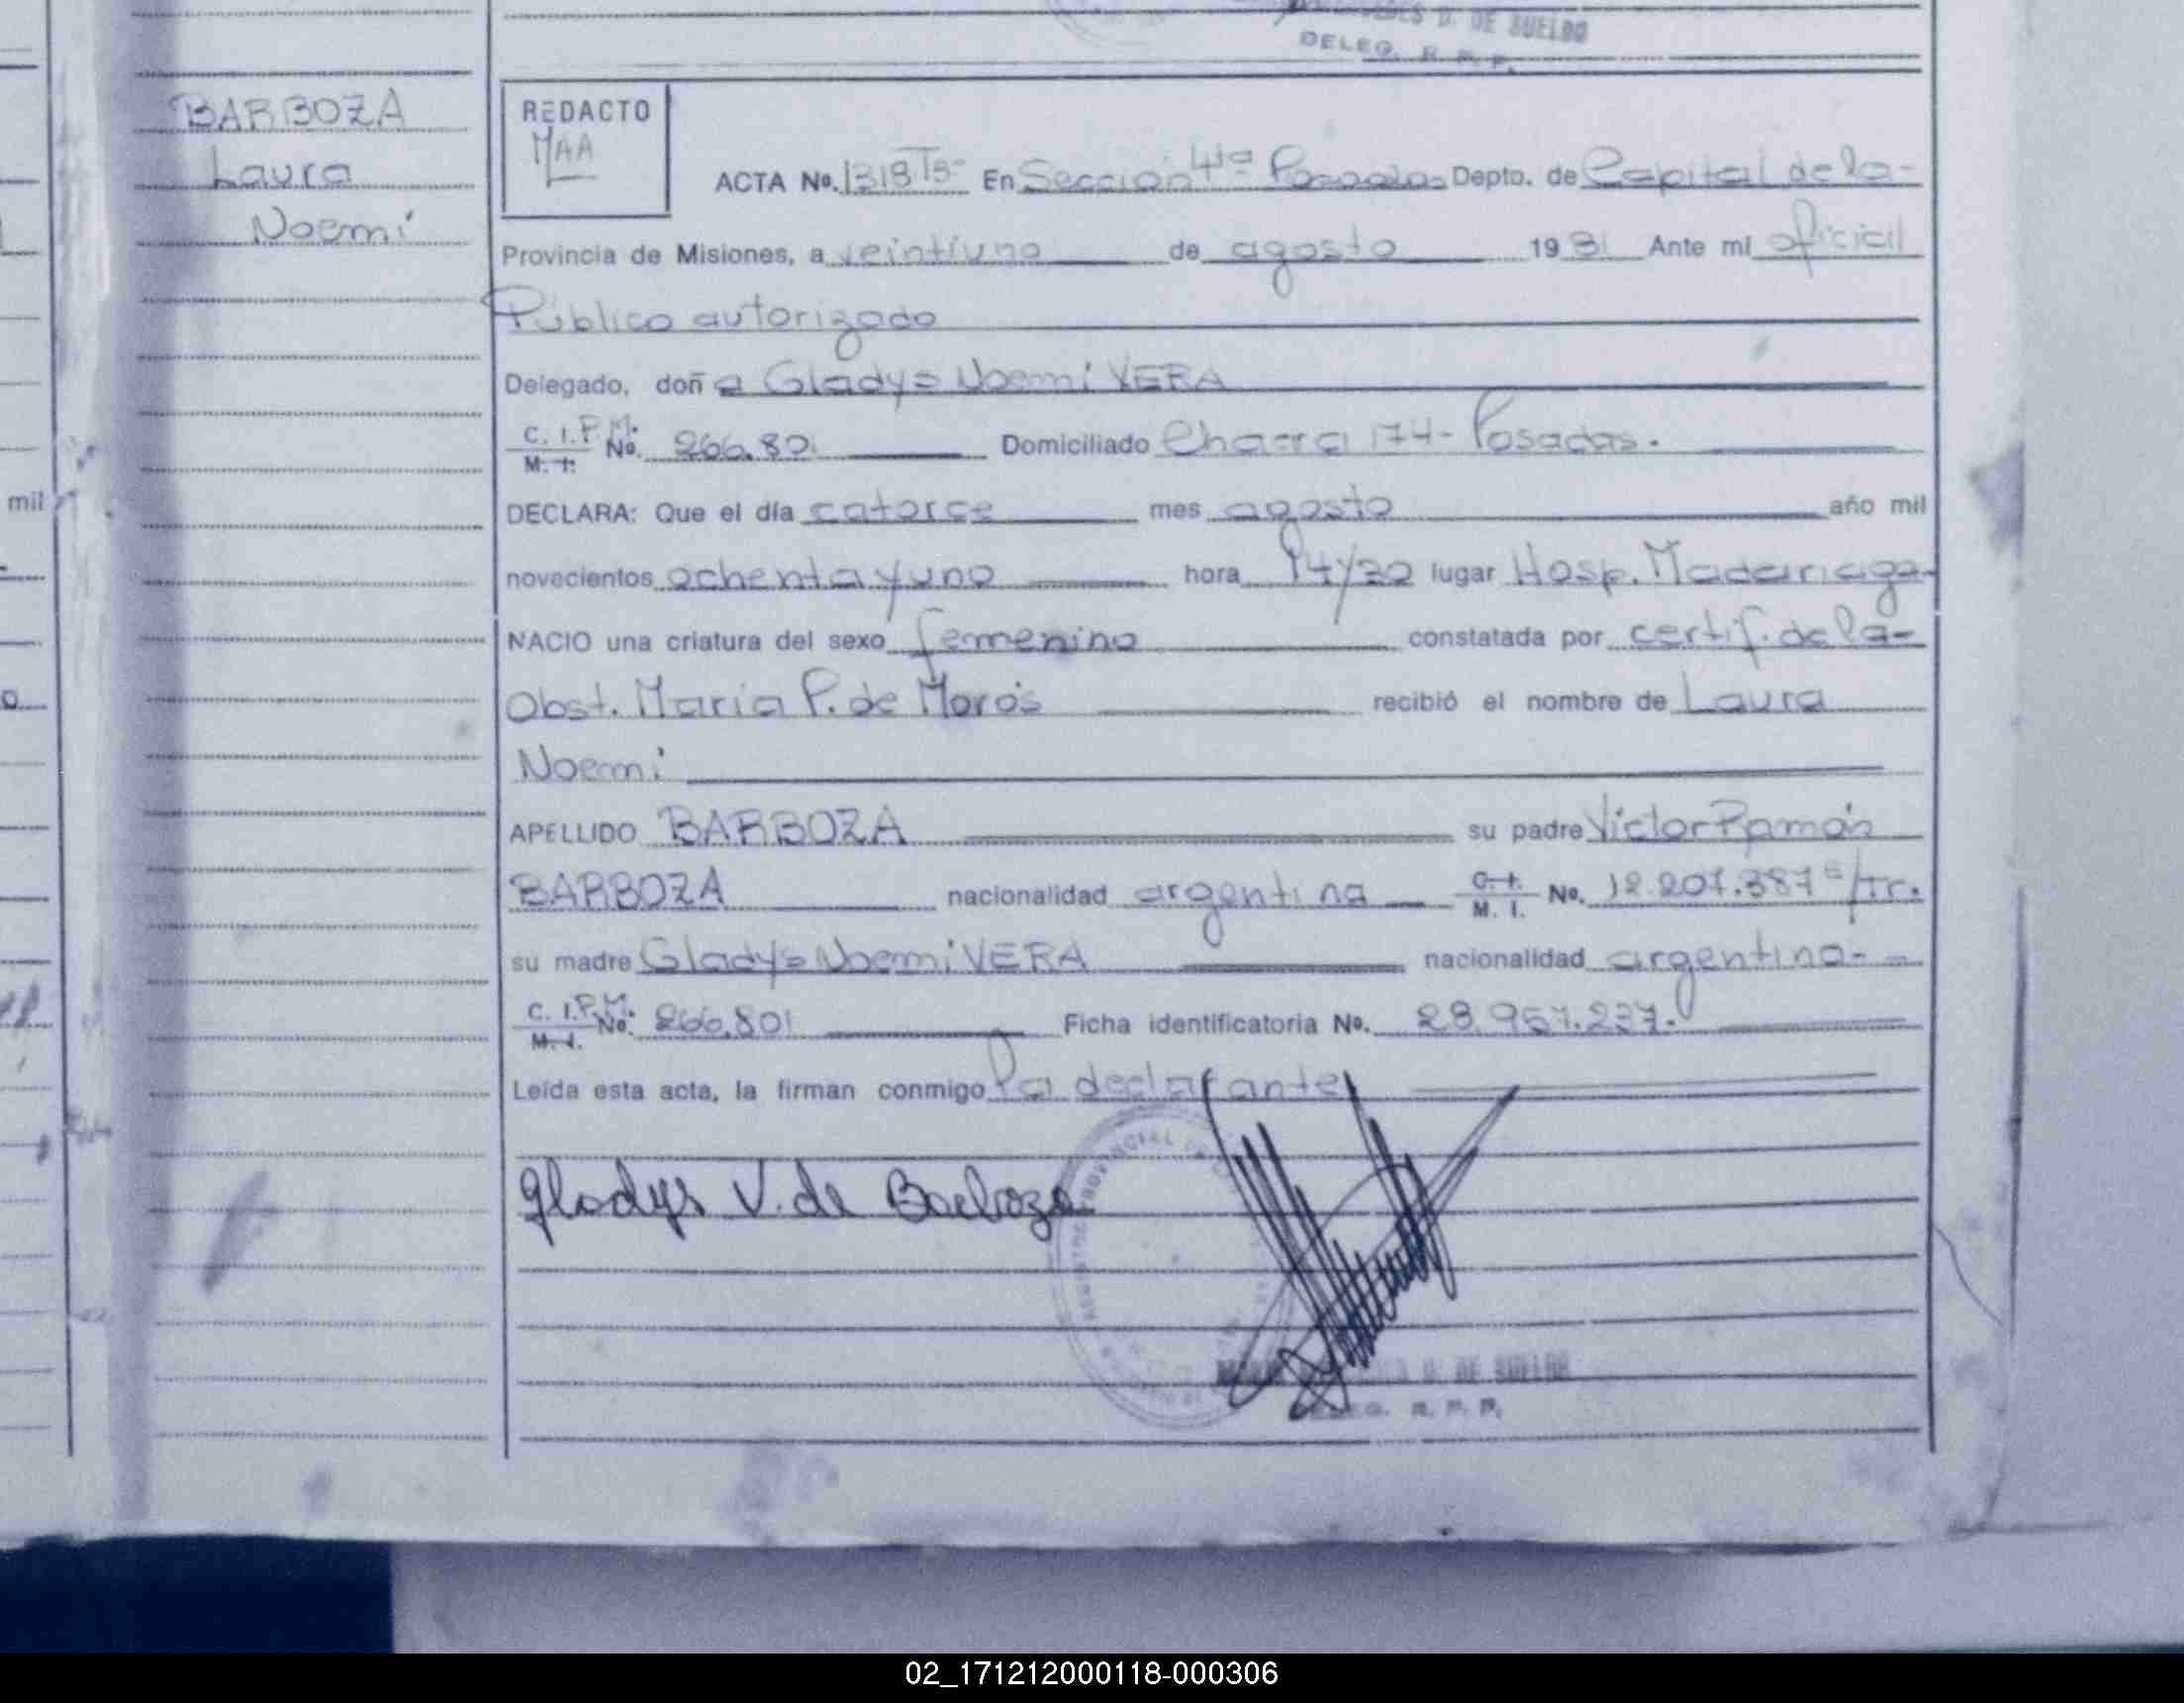 D. DE SUELDO
DELEG. R. P. P.
BARBOZA
Laura
Noemí
REDACTO
MAA
ACTA No. 1318 Tº- En Sección 4ta Posadas Depto. de Capital de la-
Provincia de Misiones, a veintiuno de agosto 1981 Ante mi oficial
Público autorizado
Delegado, doña Gladys Noemí VERA
C. I. P. M. No. 266.801 Domiciliado Chacra 174- Posadas.
M. I.
DECLARA: Que el día catorce mes agosto año mil
mil
novecientos ochenta y uno hora 14y30 lugar Hosp. Madariaga-
NACIO una criatura del sexo femenino constatada por certif. de la-
Obst. María P. de Morós recibió el nombre de Laura
Noemí
APELLIDO BARBOZA su padre Víctor Ramón
BARBOZA nacionalidad argentina C. I. M. I. No. 12.207.387 E/Tr.
su madre Gladys Noemí VERA nacionalidad argentina-
C. I. P. M. No. 266.801 Ficha identificatoria No. 28.957.237.
M. I.
Leída esta acta, la firman conmigo la declarante
Gladys V. de Barboza
D. DE SUELDO
DELEG. R. P. P.
02_171212000118-000306